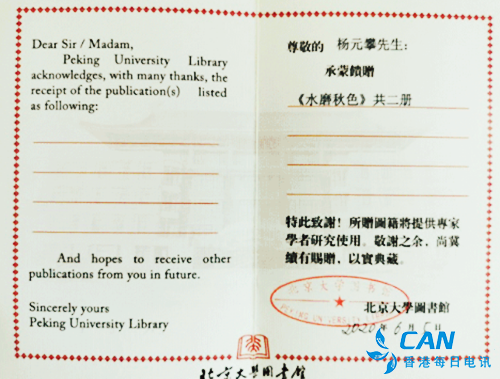 Dear Sir / Madam,
Peking University Library
acknowledges, with many thanks, the
receipt of the publication(s) listed
as following:
And hopes to receive other
publications from you in future.
Sincerely yours
Peking University Library
尊敬的 杨元攀先生：
承蒙饋贈
《水磨秋色》共二册
特此致謝！所贈圖籍將提供專家
學者研究使用。敬謝之余，尚冀
續有賜贈，以實典藏。
北京大學圖書館
PEKING UNIVERSITY LIBRARY
北京大學圖書館
2020年6月5日
CAN
香港每日电讯
北京大學圖書館